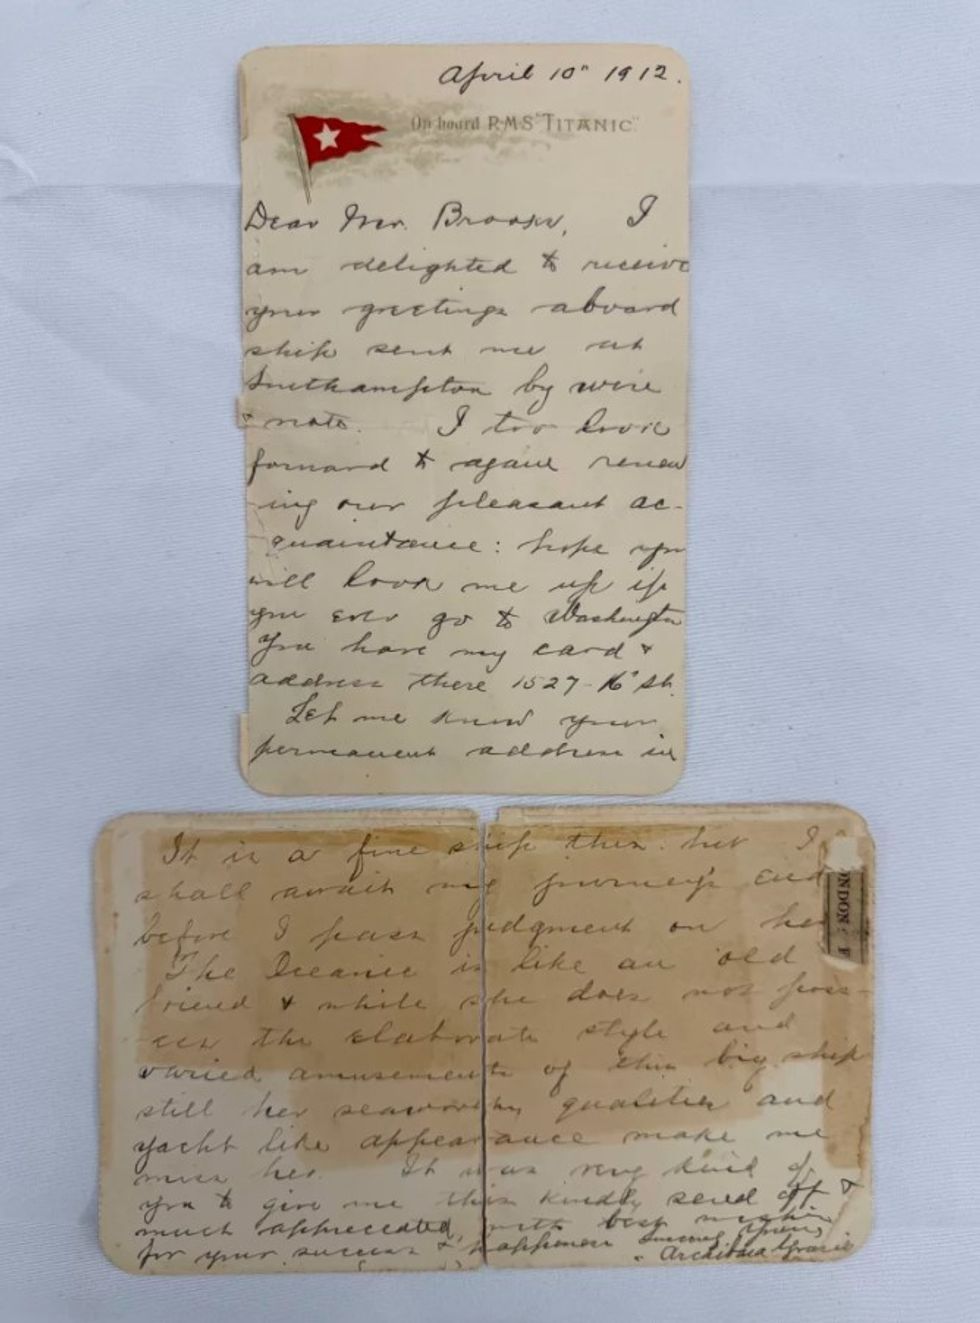 April 10" 1912.
On board RMS "TITANIC"
Dear Mr. Brooks, I
am delighted to receive
your greetings aboard
ship sent me at
Southampton by wire
& note. I too look
forward to again renew
ing our pleasant ac-
quaintance: hope you
will look me up if
you ever go to Washington
You have my card &
address there 1527-16" St.
Let me know your
permanent address in
It is a fine ship this but I
shall await my journey's end
before I pass judgment on her
ONDON : E
The Oceanic is like an old
friend & while she does not poss-
ess the elaborate style and
varied amusements of this big ship
still her seaworthy qualities and
yacht like appearance make me
miss her. It was very kind of
you to give me this kindly send off &
much appreciated, with best wishes
for your success & happiness
Archibald Gracie